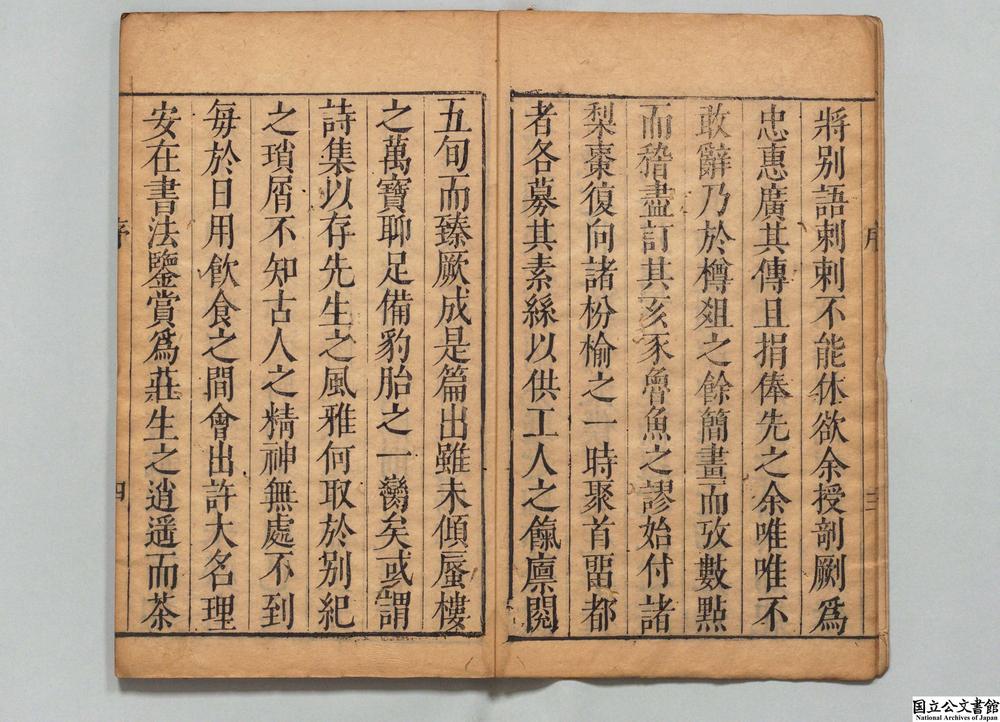 將别語刺刺不能休欲余授剞劂爲
忠惠廣其傳且捐俸先之余唯唯不
敢辭乃於樽爼之餘簡畫而攷數點
而稽盡訂其亥豕魯魚之謬始付諸
梨棗復向諸枌榆之一時聚首畱都
者各募其素絲以供工人之餼廪閱
五旬而臻厥成是篇出雖未傾蜃樓
之萬寶聊足備豹胎之一臠矣或謂
詩集以存先生之風雅何取於别紀
之瑣屑不知古人之精神無處不到
每於日用飲食之間會出許大名理
安在書法鑒賞爲莊生之逍遥而茶
序
三
序
四
国立公文書館
National Archives of Japan